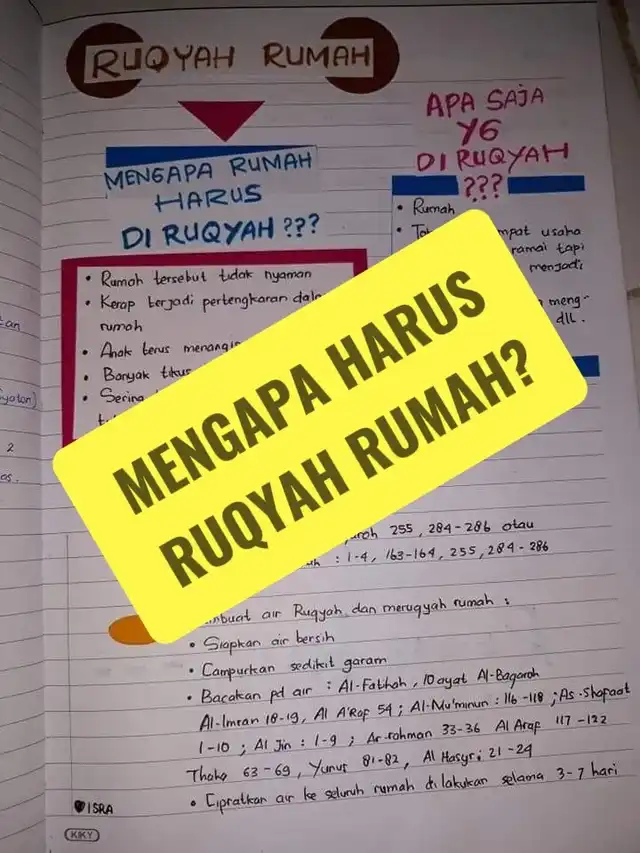 RUQYAH RUMAH
MENGAPA RUMAH
HARUS
DI RUQYAH ???
• Rumah tersebut tidak nyaman
• Kerap terjadi pertengkaran
rumah
• Anak terus
• Banyak tikus
• Sering
APA SAJA
YG
DI RUQYAH
???
• Rumah
usaha
ramai tapi
menjadi
meng-
dll.
MENGAPA HARUS
RUQYAH RUMAH?
255, 284-286 atau
: 1-4, 163-164, 255, 284-286
air Ruqyah dan meruqyah rumah :
• Siapkan air bersih
• Campurkan sedikit garam
• Bacakan pd air : Al-Fatihah, 10 ayat Al-Baqaroh
Al-Imran 18-19, Al A'Rof 54 ; Al-Mu'minun : 116-118 ; As-Shofaat
1-10 ; Al Jin : 1-9 ; Ar-rohman 33-36 Al Araf 117-122
Thoha 63-69, Yunus 81-82, Al Hasyr : 21-24
• Cipratkan air ke seluruh rumah di lakukan selama 3-7 hari
ISRA
KIKY
2